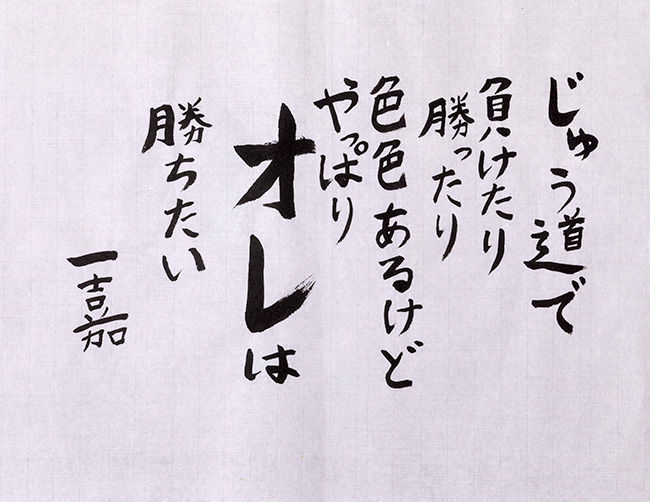 じゅう道で
負けたり
勝ったり
色色あるけど
やっぱり
オレは
勝ちたい
一嘉